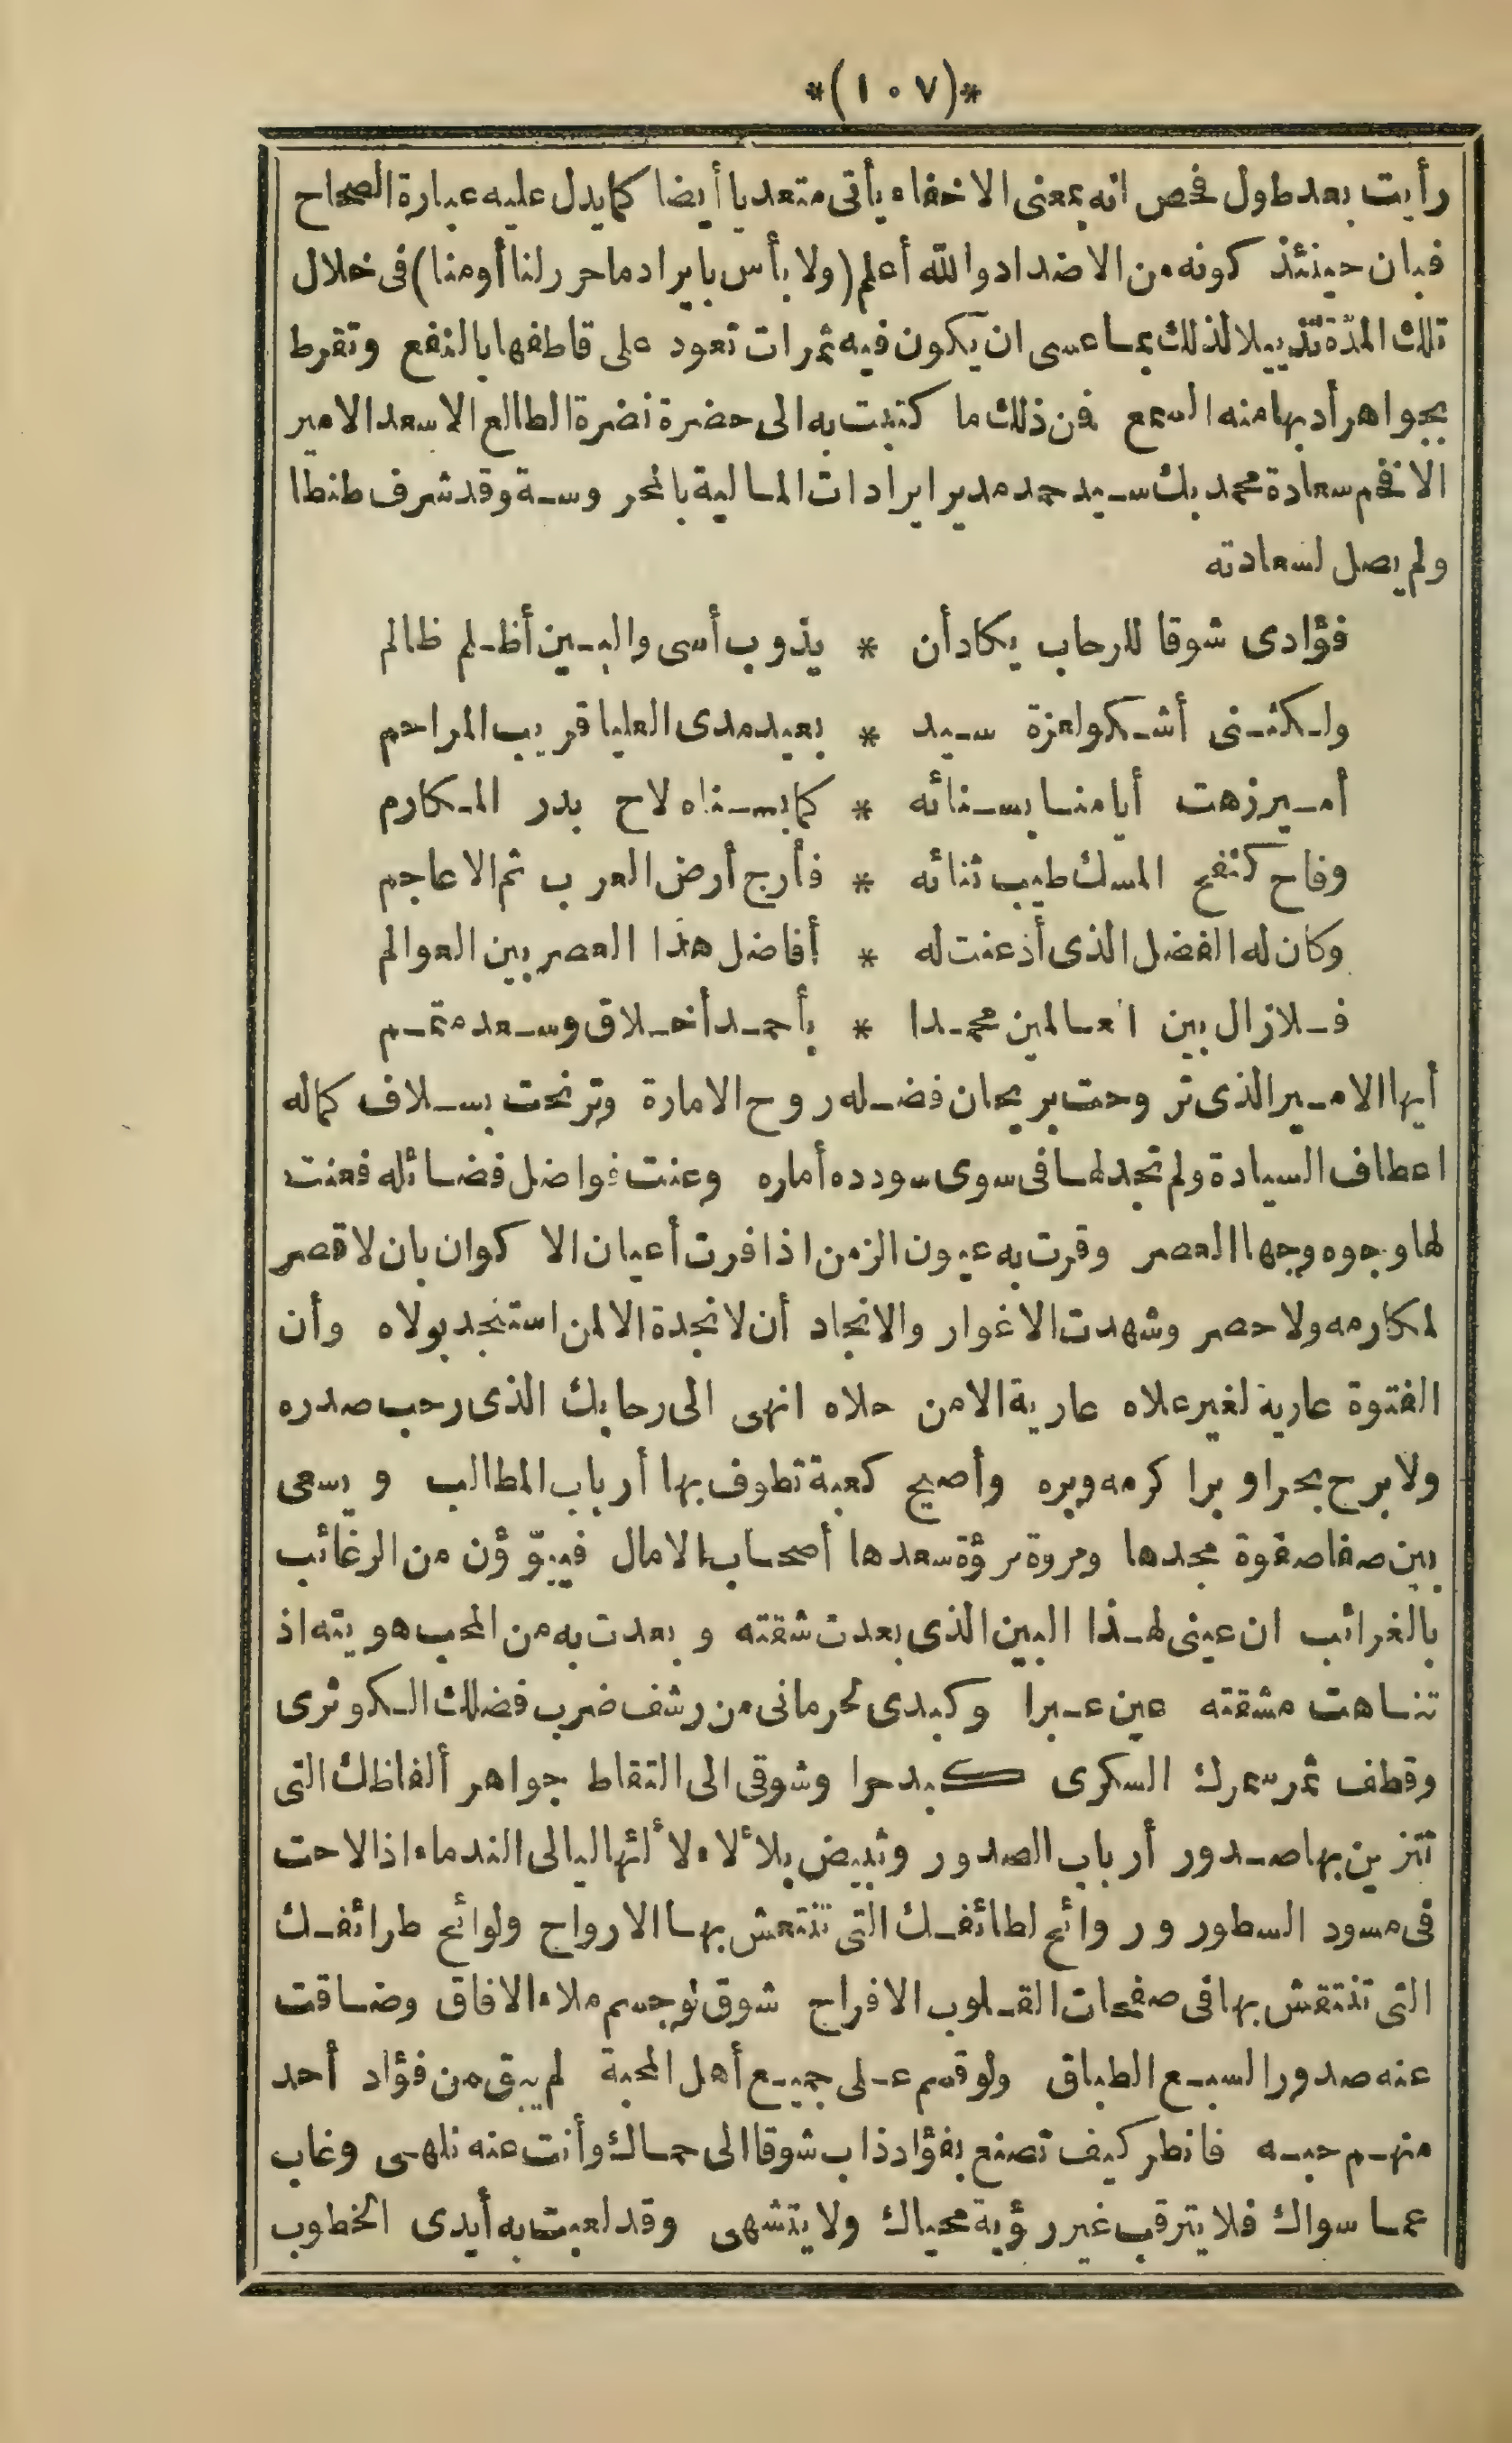 *(١٠٧)*
رأيت بعد طول فحص انه بمعنى الاخفاء يأتى متعديا أيضا كما يدل عليه عبارة الصحاح
فبان حينئذ كونه من الاضداد والله أعلم (ولا بأس بايراد ما حرر لنا أو منا) فى خلال
تلك المدّة تذييلا لذلك بما عسى ان يكون فيه ثمرات تعود على قاطفها بالنفع وتقرط
بجواهر أدبها منه السمع فمن ذلك ما كتبت به الى حضرة نضرة الطالع الاسعد الامير
الافخم سعادة محمد بك سيد حمد مدير ايرادات المالية بالمحروسة وقد شرف طنطا
ولم يصل لسعادته
فؤادى شوقا للرحاب يكاد أن * يذوب أسى والبين أظلم ظالم
ولكننى أشكو لعزة سيد * بعيد مدى العليا قريب المراحم
أمير زهت أيامنا بسنائه * كما بسناه لاح بدر المكارم
وفاح كنفح المسك طيب ثنائه * فأرج أرض العرب ثم الاعاجم
وكان له الفضل الذى أذعنت له * أفاضل هذا العصر بين العوالم
فلا زال بين العالمين محمدا * بأحمد أخلاق وسعد متمم
أيها الامير الذى تروحت بريحان فضله روح الامارة وترنحت بسلاف كماله
اعطاف السيادة ولم تجد لها فى سوى سودده أماره وعنت فواضل فضائله فعنت
لها وجوه وجها العصر وقرت به عيون الزمن اذا فرت أعيان الا كوان بان لا قصر
لمكارمه ولا حصر وشهدت الاغوار والانجاد أن لا نجدة الا لمن استنجد بولاه وأن
الفتوة عارية لغير علاه عارية الا من حلاه انهى الى رحابك الذى رحب صدره
ولا برح بحرا وبرا كرمه وبره وأصبح كعبة تطوف بها أرباب المطالب ويسعى
بين صفا صفوة مجدها ومروة مرؤة سعدها أصحاب الامال فيبوّؤن من الرغائب
بالغرائب ان عينى لهذا البين الذى بعدت شقته وبعدت به من المحب هويته اذ
تناهت مشقته عين عبرا وكبدى لحرمانى من رشف ضرب فضلك الكوثرى
وقطف ثمر سمرك السكرى كبد حرا وشوقى الى التقاط جواهر ألفاظك التى
تتزين بها صدور أرباب الصدور وتبيض بلألاء لألائها ليالى الندماء اذا لاحت
فى مسود السطور وروائح لطائفك التى تنتعش بها الارواح ولوائح طرائفك
التى تنتقش بها فى صفحات القلوب الافراح شوق لو جسم ملاء الافاق وضاقت
عنه صدور السبع الطباق ولو قسم على جميع أهل المحبة لم يبق من فؤاد أحد
منهم حبه فانظر كيف تصنع بفؤاد ذاب شوقا الى حماك وأنت عنه تلهى وغاب
عما سواك فلا يترقب غير رؤية محياك ولا يتشهى وقد لعبت به أيدى الخطوب